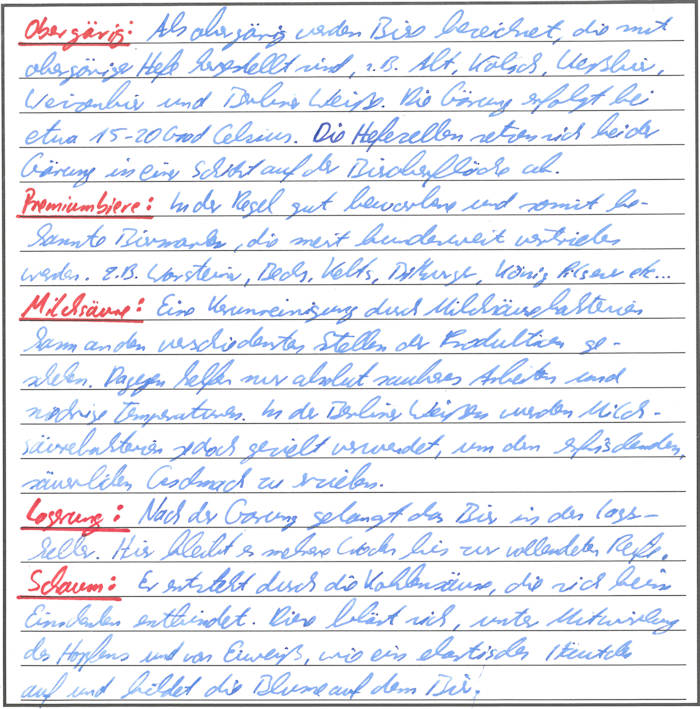 Obergärig: Als obergärig werden Biere bezeichnet, die mit
obergäriger Hefe hergestellt sind, z.B. Alt, Kölsch, Weißbier,
Weizenbier und Berliner Weiße. Die Gärung erfolgt bei
etwa 15-20 Grad Celsius. Die Hefezellen setzen sich bei der
Gärung in einer Schicht auf der Bieroberfläche ab.
Premiumbiere: In der Regel gut beworbene und somit be-
kannte Biermarken, die meist bundesweit vertrieben
werden. z.B. Warsteiner, Becks, Velts, Bitburger, König Pilsener etc...
Milchsäure: Eine Verunreinigung durch Milchsäurebakterien
kann an den verschiedensten Stellen der Produktion ge-
schehen. Dagegen helfen nur absolut sauberes Arbeiten und
niedrige Temperaturen. In der Berliner Weißen werden Milch-
säurebakterien jedoch gezielt verwendet, um den erfrischenden,
säuerlichen Geschmack zu erzielen.
Lagerung: Nach der Gärung gelangt das Bier in den Lager-
keller. Hier bleibt es mehrere Wochen bis zur vollendeten Reife.
Schaum: Er entsteht durch die Kohlensäure, die sich beim
Einschenken entbindet. Diese bläst sich, unter Mitwirkung
des Hopfens und von Eiweiß, wie ein elastisches Häutchen
auf und bildet die Blume auf dem Bier.